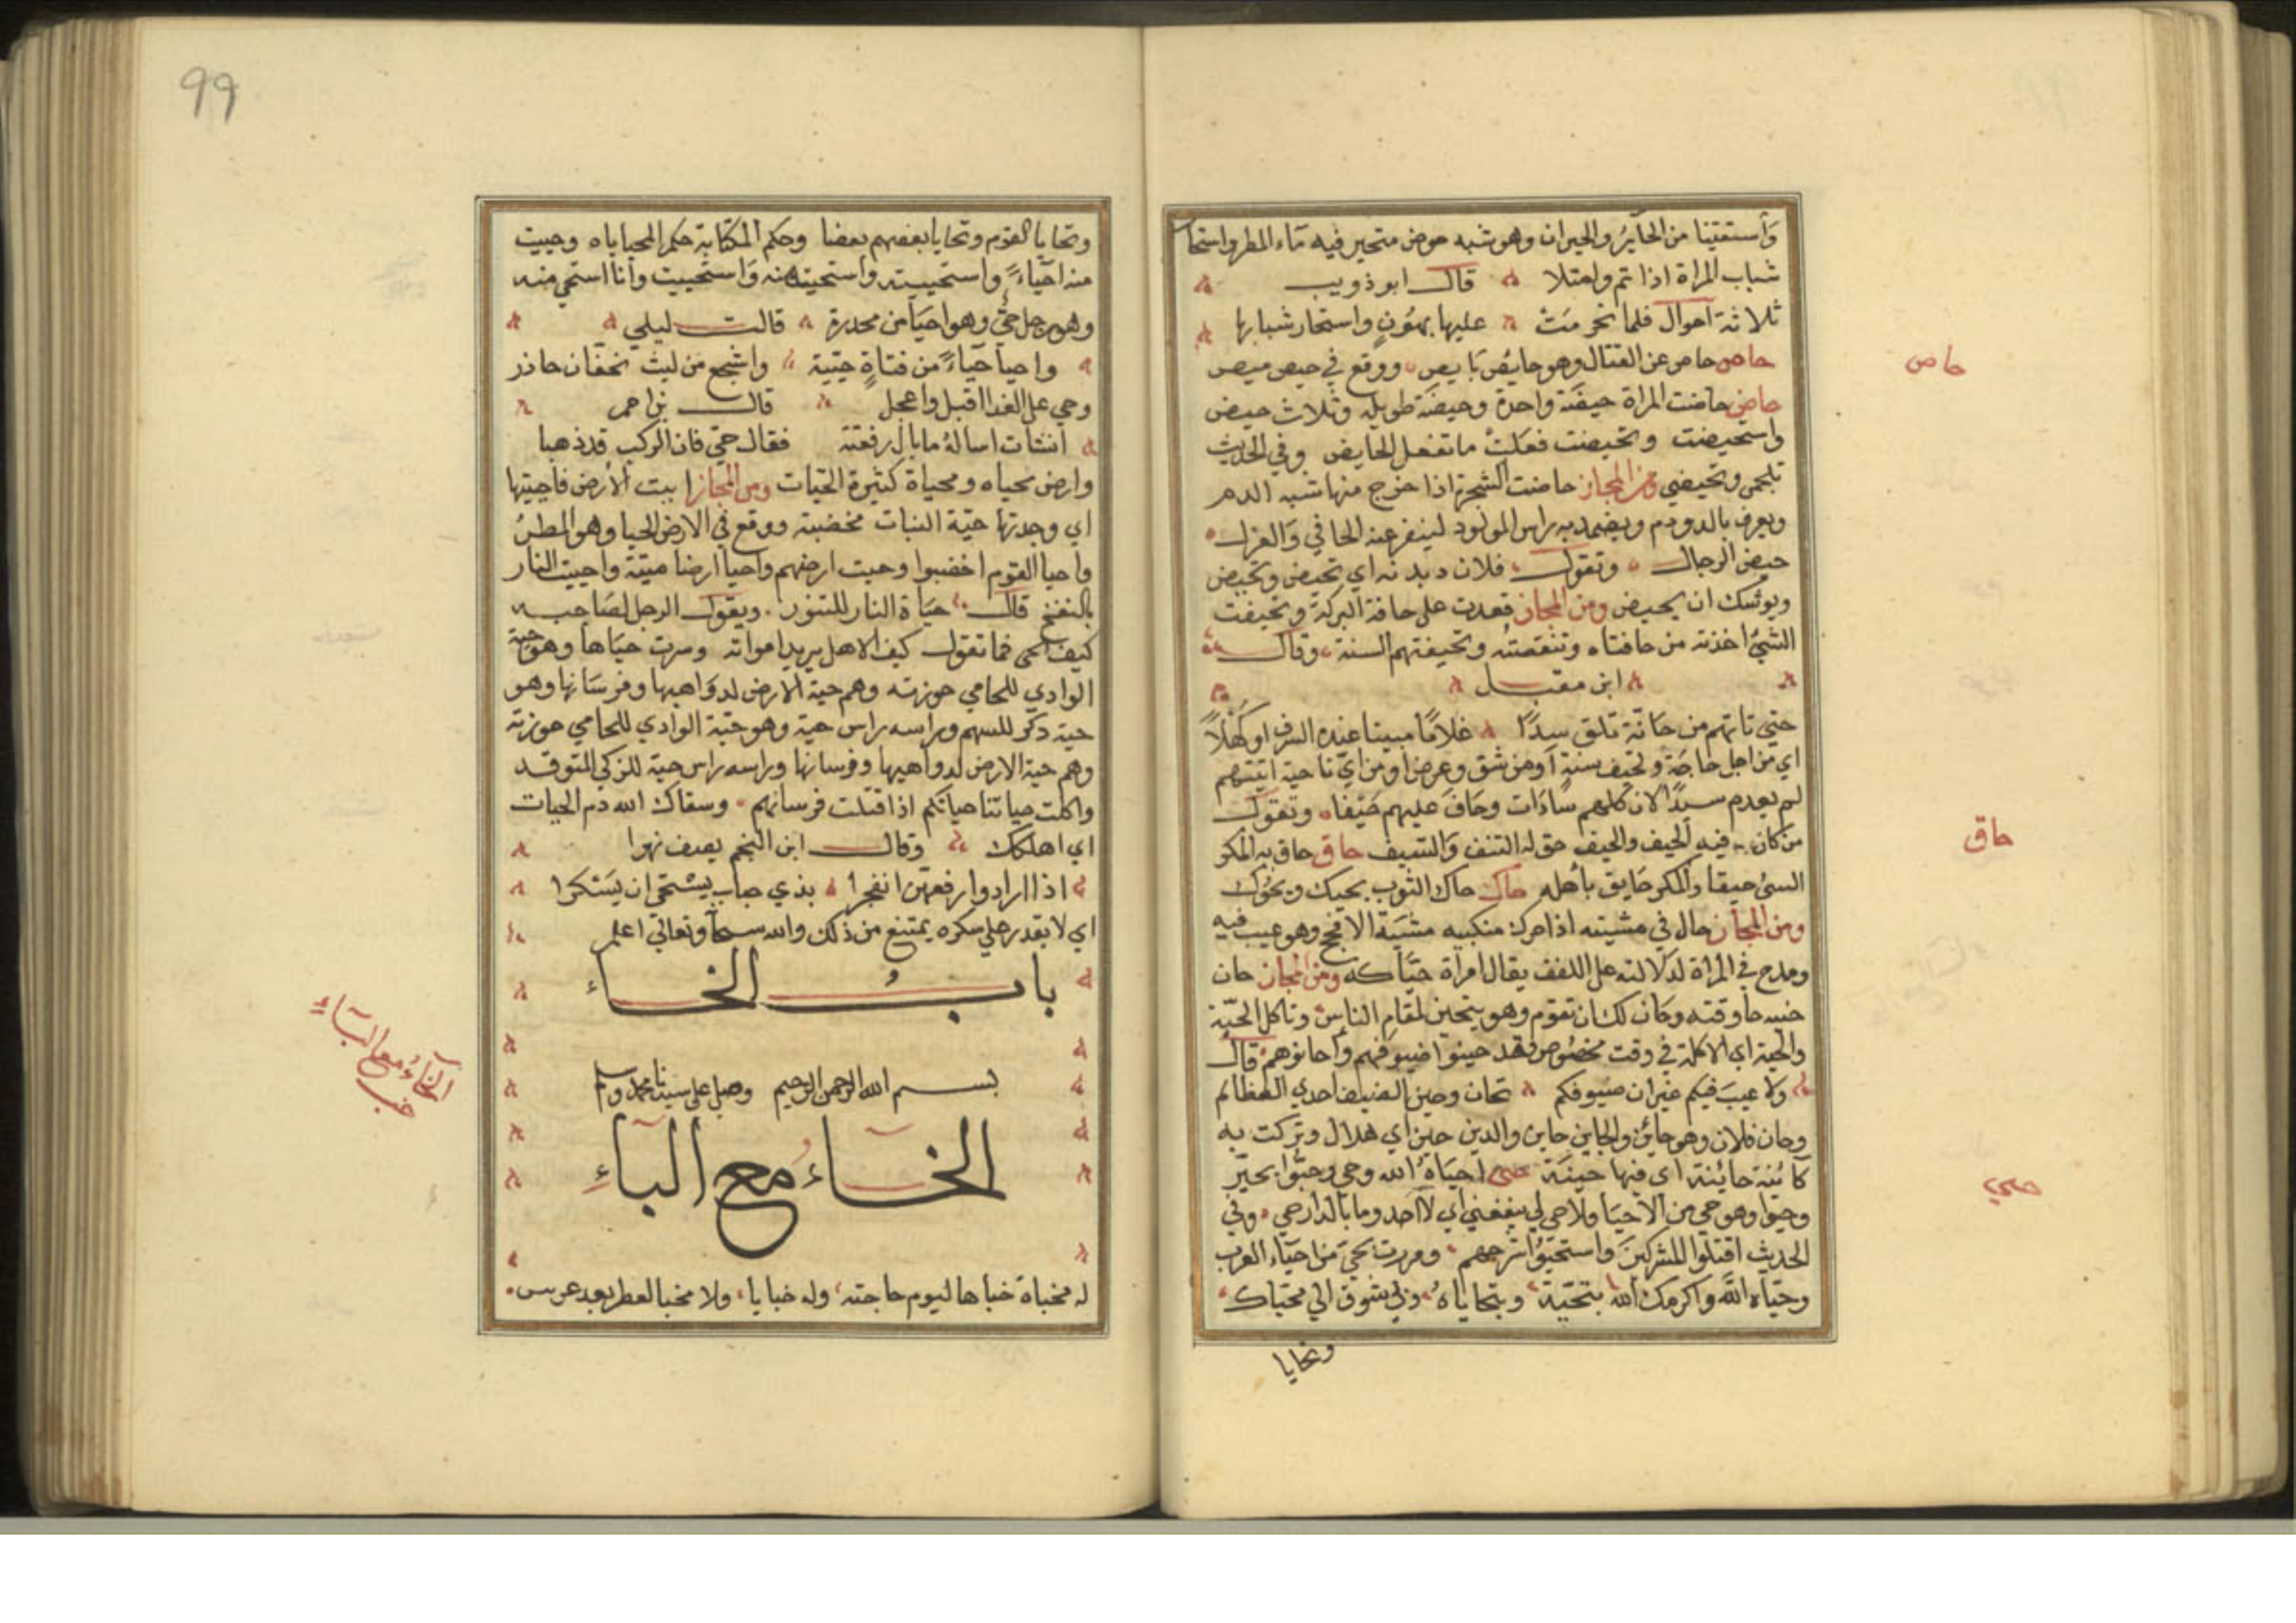 وأستقينا من الحاير والحيران وهو شبه حوض متحير فيه ماء المطر واستحار
شباب المراة اذا تم وامتلا قال ابو ذويب
ثلاثة احوال فلما تجرمت عليها بهون واستحار شبابها
حاص حاص عن القتال وهو حايص بايص ووقع في حيص بيص
حاص
حاض حاضت المراة حيضة واحدة وحيضة طويلة وثلاث حيض
واستحيضت وتحيضت فعلت ما تفعل الحايض وفي الحديث
تلجمي وتحيضي ومن المجاز حاضت الشجرة اذا خرج منها شبه الدم
ويعرف بالدودم ويضمد به راس المولود لينفر عنه الجافي والغزل
حيض الرجال وتقول فلان ديدنه اي تحيض وتحيض
ويوشك ان يحيض ومن المجاز قعدت على حافة البركة وتحيفت
الشيئ اخذته من حافتاه وتنقصته وتحيفتهم السنة وقال
ابن مقبل
حتى تاتهم من حاتة تلق سيدا غلاما مبينا عنده السرف او كهلا
اي من اجل حاجة وتحيف سنة اومن شق وعرض اومن اي ناحية اتيتهم
لم يعدم سيدا لان كلهم سادات وحاف عليهم حيفا وتقول
من كان فيه الحيف والحيف حق له التنف والسيف حاق حاق به المكر
حاق
السئ حيقا والمكر حايق بأهله حاك حاك الثوب يحيك ويحوك
ومن المجاز حال في مشيته اذا حرك منكبيه مشية الافحج وهو عيب فيه
ومدح في المراة لدلالته على اللفف يقال امراة حياكه ومن المجاز حان
حينه جا وقته وحان لك ان تقوم وهو يتحين لمقام الناس وتاكل الحينة
والحينة اي الاكلة في وقت مخصوص وقد حينوا ضيوفهم واحانوهم قال
ولا عيب فيكم غير ان ضيوفكم تحان وحين الضيف احدي العظايم
وحان فلان وهو حائن والحاين حاين والدين حين اي هلال وتركت به
كائنة حائنة اي فيها حينة حيي احياه الله وحي وحيوا بخير
حيي
وحيوا وهو حي من الاحيا ولا حي لي ينفعني اي لا احد وما بالدار حي وفي
الحديث اقتلوا المشركين واستحيوا شرخهم ومررت بحي من احياء العرب
وحياه الله واكرمك الله بتحية وبتحاياه وبي شوق الي محياك
وتحايا
99
وتحايا القوم وتحايا بعضهم بعضا وحكم المكتابة حكم المحياياه وحييت
منه احياء واستحييته واستحيته منه واستحييت وانا استحي منه
وهو رجل حيي وهو احيا من مخدرة قالت ليلي
واحيا حياء من فتاة حيية واشجع من ليث بخفان حاذر
وحي على الغدا اقبل واعجل قال بن احمر
انشات اساله ما بال رفقته فقال حي فان الركب قد ذهبا
وارض محياه ومحياة كثيرة الحيات ومن المجاز اييت الارض فاحييتها
اي وجدتها حية النبات مخضبة ووقع في الارض الحيا وهو المطر
واحيا القوم اخضبوا وحيت ارضهم واحيا ارضا ميتة واحييت النار
بالنفخ قال حياة النار للتنور ويقول الرجل لصاحبه
كيف الحي فما تقول كيف الاهل يريد امراته وسرت حياها وهو حية
الوادي للحامي حوزته وهم حية الارض لدواهيها وفرسانها وهو
حية ذكر للسهم وراسه راس حية وهو حية الوادي للحامي حوزته
وهم حية الارض لدواهيها وفرسانها وراسه راس حية للزكي المتوقد
واكلت حياتنا حياتكم اذا قتلت فرسانهم وسقاك الله دم الحيات
اي اهلكك وقال ابن النجم يصف نهرا
اذا ارادوا رفعهن انفجرا بذي حباب يستحي ان يستكرا
اي لا يقدر على سكره يمتنع من ذلك والله سبحانه وتعالى اعلم
باب الخاء
بسم الله الرحمن الرحيم وصل على سيدنا محمد وسلم
الخاء مع الباء
الخاء مع الباء
خب
له مخباة خباها ليوم حاجته وله خبايا ولا مخبا لعطر بعد عرس